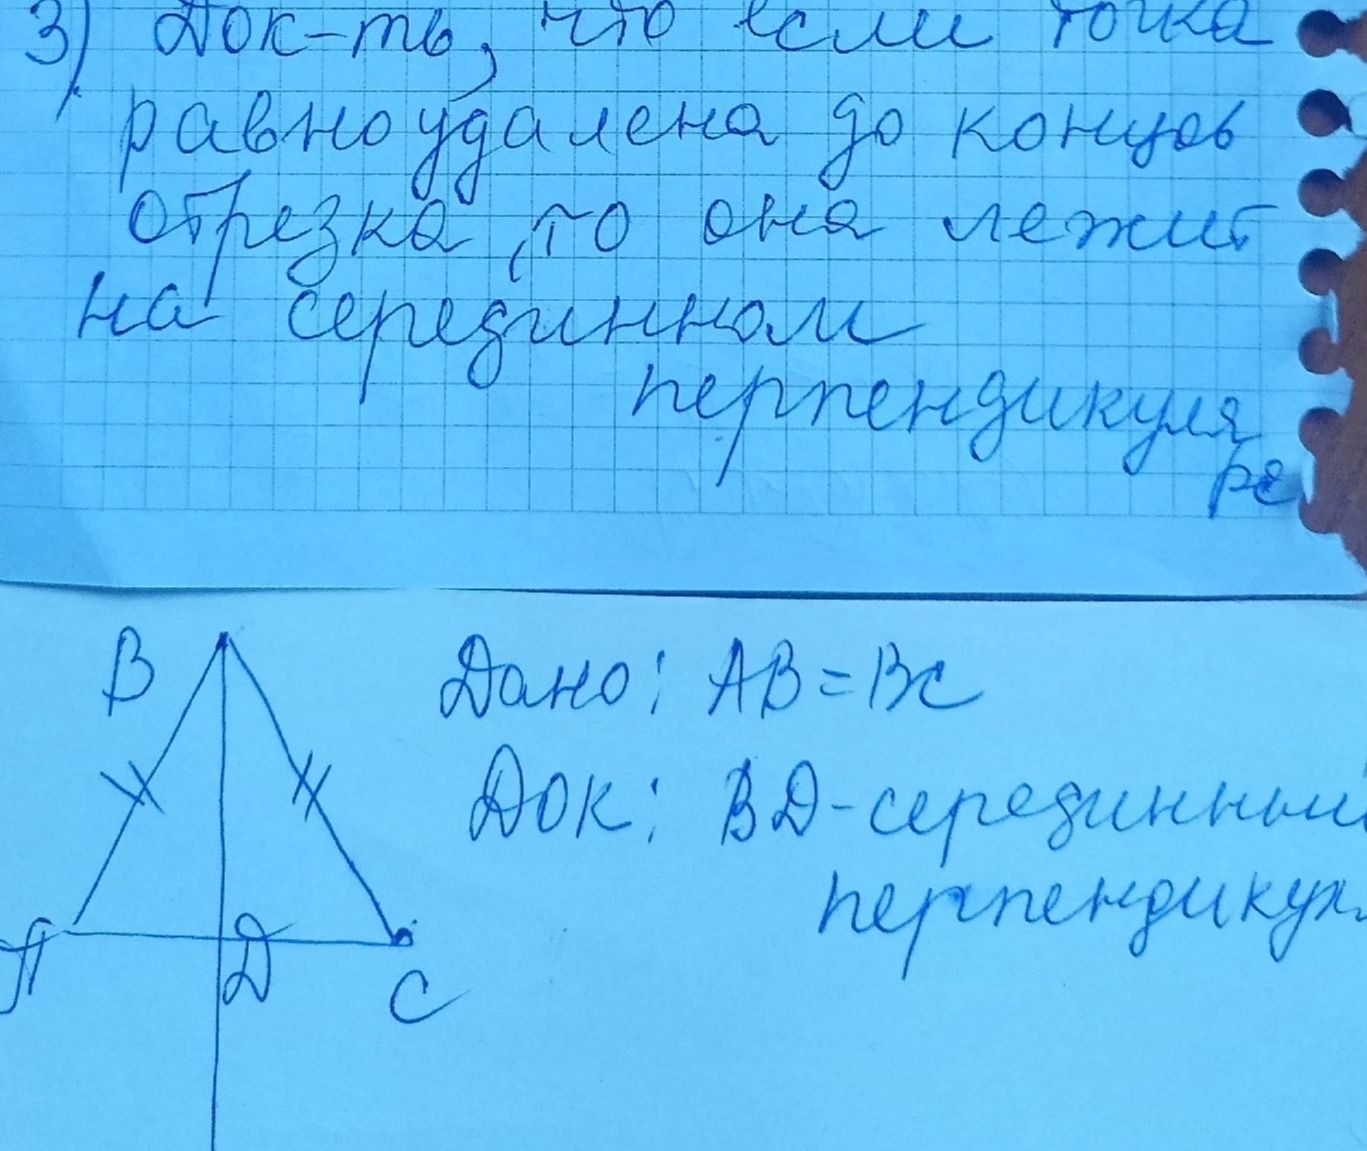 3) Док-ть, что если точка
равноудалена до концов
отрезка, то она лежит
на серединном
перпендикуля
ре
В
Дано: АВ=ВС
Док: ВД-серединный
перпендикул
А
Д
С